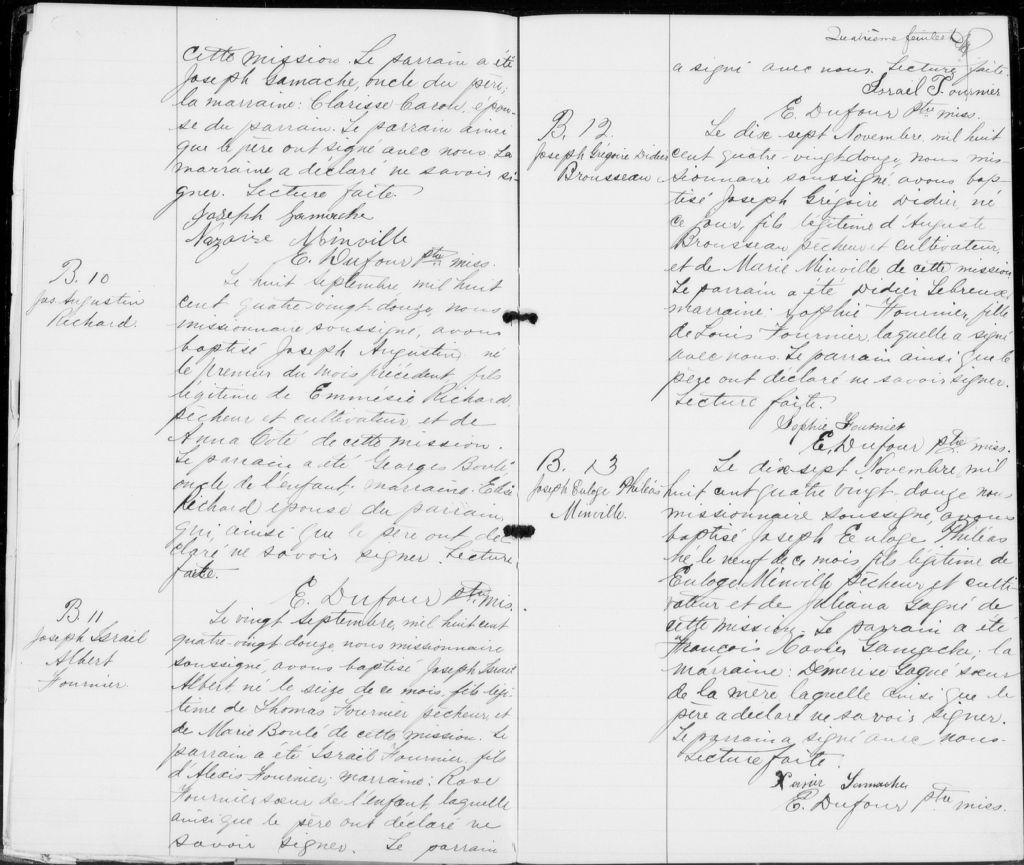 cette mission. Le parrain a été
Joseph Gamache, oncle du père;
la marraine: Clarisse Caron, épou-
se du parrain. Le parrain ainsi
que le père ont signé avec nous. La
marraine a déclaré ne savoir si-
gner. Lecture faite.
Joseph Gamache
Nazaire Minville
E. Dufour ptre miss.
B. 10
Jos. Augustin
Richard.
Le huit Septembre, mil huit
cent quatre-vingt-douze, nous
missionnaire soussigné, avons
baptisé Joseph Augustin né
le premier du mois précédent fils
légitime de Emmésie Richard
pêcheur et cultivateur et de
Anna Coté de cette mission.
Le parrain a été Georges Boulé
oncle de l'enfant; marraine. Elise
Richard épouse du parrain,
qui, ainsi que le père ont dé-
claré ne savoir signer. Lecture
faite.
E. Dufour ptre mis.
B 11
Joseph Israël
Albert
Fournier
Le vingt Septembre, mil huit cent
quatre-vingt douze, nous missionnaire
soussigné, avons baptisé Joseph Israel
Albert né le seize de ce mois, fils légi-
time de Thomas Fournier pêcheur, et
de Marie Boulé de cette mission. Le
parrain a été Israël Fournier, fils
d'Alexis Fournier; marraine: Rose
Fournier sœur de l'enfant, laquelle
ainsi que le père ont déclaré ne
savoir signer. Le parrain
Quatrième feuillet
a signé avec nous. Lecture faite.
Israel T. Fournier
E. Dufour ptre miss.
B. 12.
Joseph Grégoire Didier
Brousseau
Le dix sept Novembre, mil huit
cent quatre-vingt douze, nous mis-
sionnaire soussigné, avons bap-
tisé Joseph Grégoire Didier né
ce jour, fils légitime d'Auguste
Brousseau pêcheur et cultivateur,
et de Marie Minville de cette mission
Le parrain a été Didier Lebreux,
marraine: Sophie Fournier, fille
de Louis Fournier, laquelle a signé
avec nous. Le parrain ainsi que le
père ont déclaré ne savoir signer.
Lecture faite.
Sophie Fournier
E. Dufour ptre miss.
B. 13
Joseph Euloge Philéas
Minville.
Le dix-sept Novembre, mil
huit cent quatre vingt-douze nous
missionnaire soussigné, avons
baptisé Joseph Euloge Philéas
né le neuf de ce mois, fils légitime de
Euloge Minville pêcheur et culti-
vateur et de Juliana Gagné de
cette mission. Le parrain a été
François Xavier Gamache; la
marraine: Démerise Gagné sœur
de la mère laquelle ainsi que le
père a déclaré ne savoir signer.
Le parrain a signé avec nous.
Lecture faite.
Xavier Gamache
E. Dufour ptre miss.